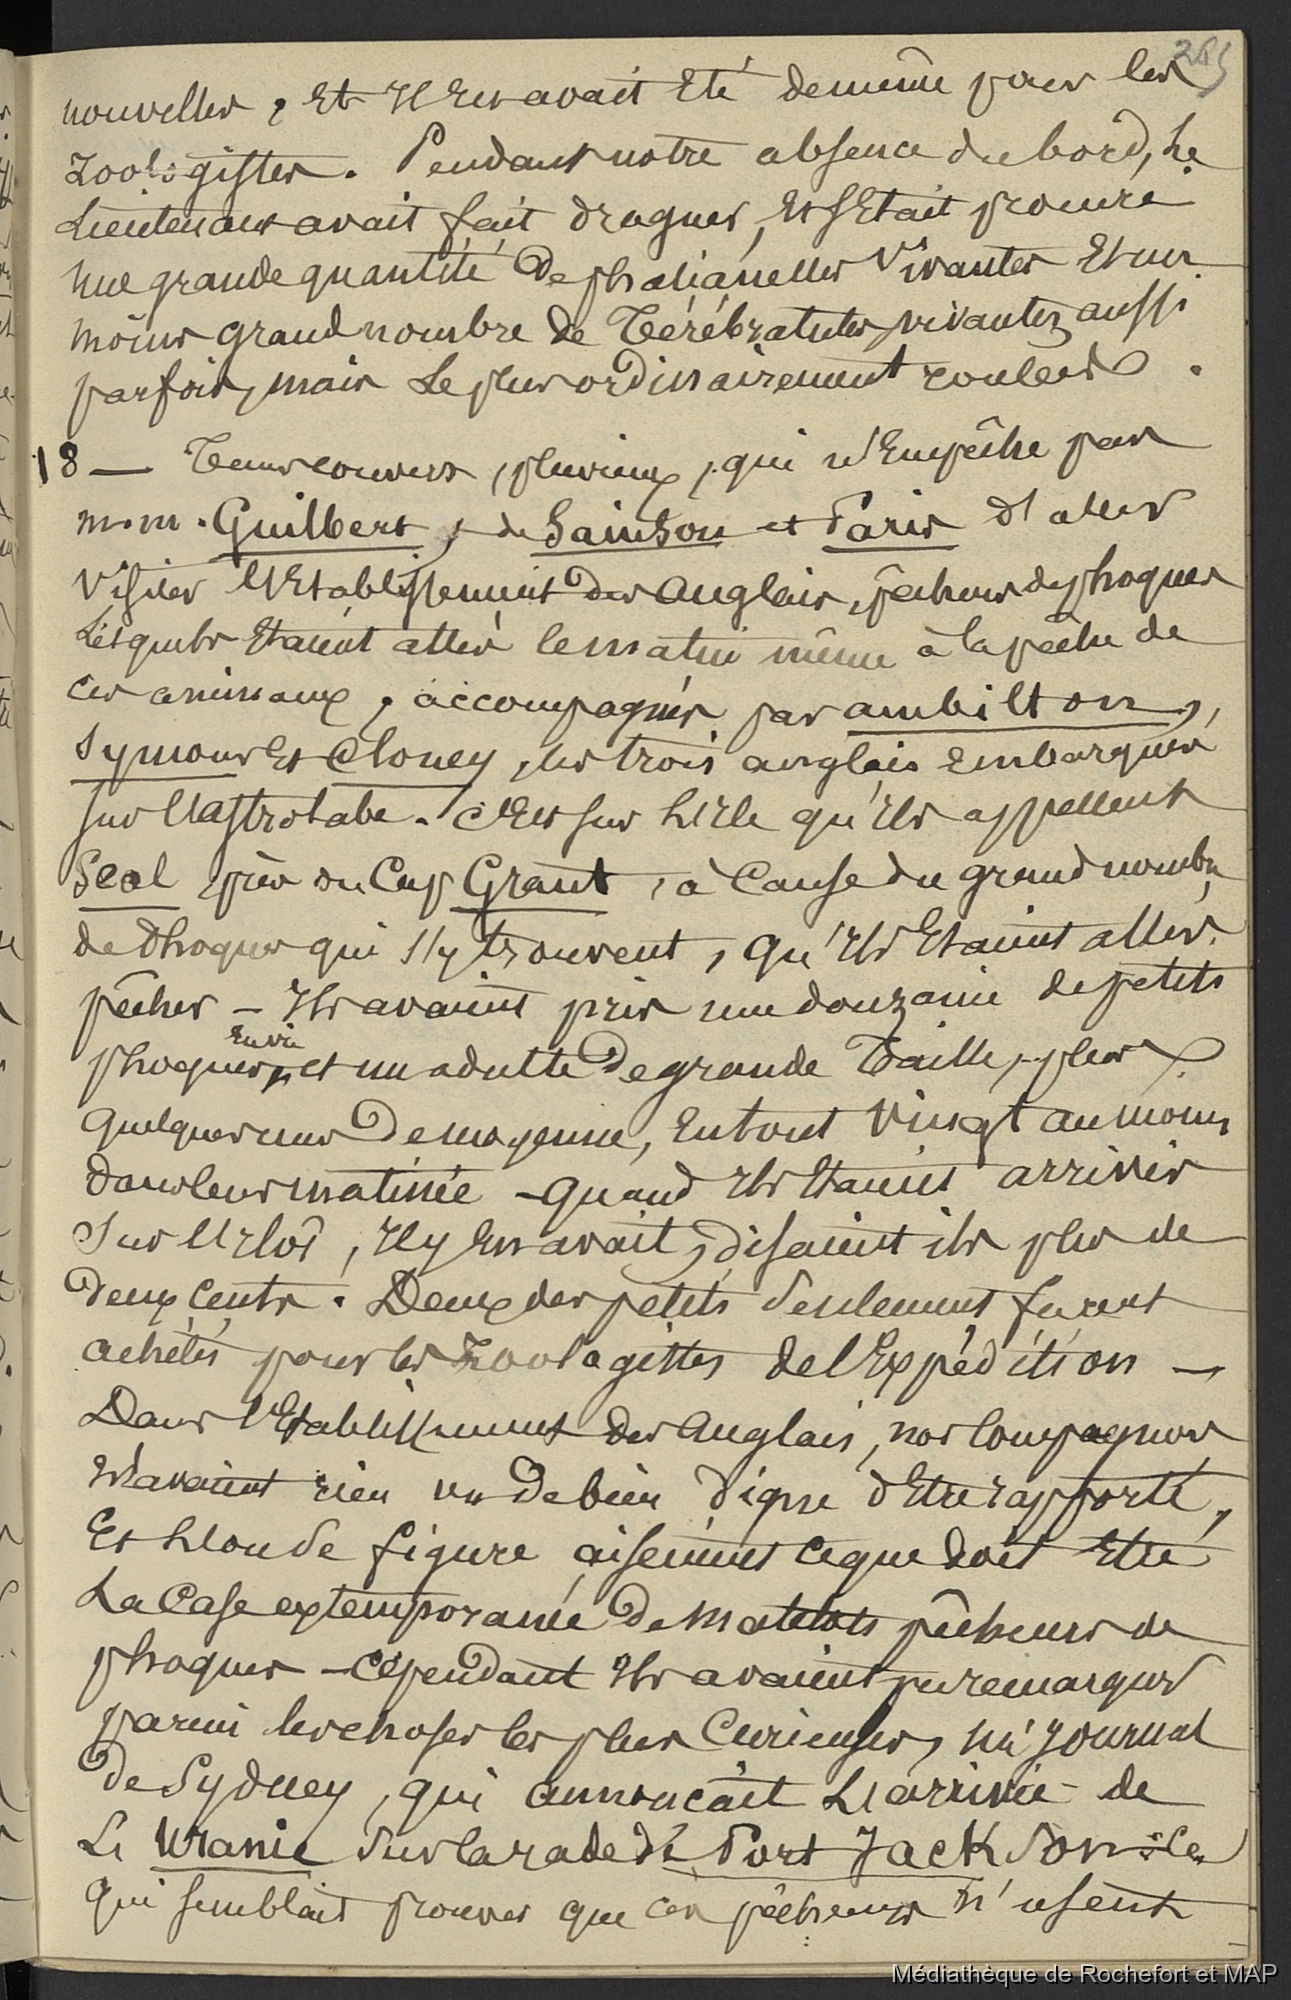 265
nouvelles, et il en avait été de même pour les
zoologistes. Pendant notre absence du bord, le
Lieutenant avait fait draguer, et s'était procuré
une grande quantité de phasianelles vivantes et un
moins grand nombre de Térébratules, vivantes aussi
parfois, mais le plus ordinairement roulées.
18 — Temps couvert, pluvieux, qui n'empêche pas
m.m. Guilbert, de Sainson et Paris d'aller
visiter l'établissement des anglais, pêcheurs de phoques
lesquels étaient allés le matin même à la pêche de
ces animaux, accompagnés par ambilton,
Symour et Cloney, les trois anglais embarqués
sur l'astrolabe. C'est sur l'ile qu'ils appellent
Seal près du Cap Grant, à cause du grand nombre
de Phoques qui s'y trouvent, qu'ils étaient allés
pêcher — Ils avaient pris une douzaine de petits
phoques, et un adulte de grande Taille, plus
envie
quelques uns de moyenne, en tout vingt au moins
dans leur matinée — quand ils étaient arrivés
sur l'ilot, il y en avait, disaient ils plus de
deux cents. Deux des petits seulement furent
achetés pour les zoologistes de l'Expédition —
Dans l'établissement des anglais, nos compagnons
n'avaient rien vu de bien digne d'être rapporté,
et l'on se figure aisément ce que doit être
la case extemporanée de matelots pêcheurs de
phoques — cependant ils avaient pu remarquer
parmi les choses les plus curieuses, un journal
de Sydney, qui annonçait l'arrivée de
L'Uranie sur la rade de Port Jackson : ce
qui semblait prouver que ces pêcheurs n'usent
Médiathèque de Rochefort et MAP